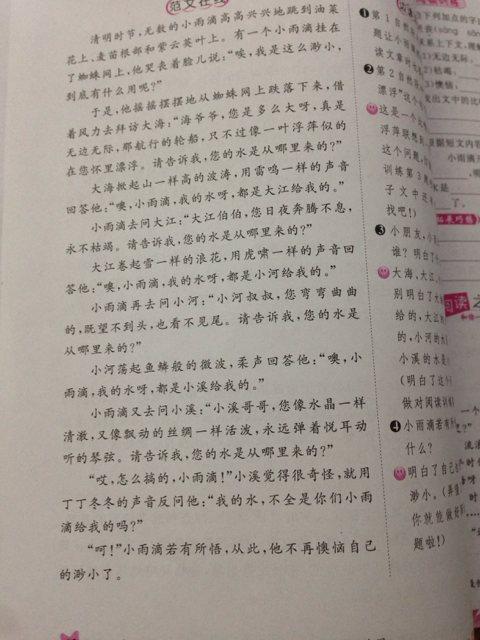 范文在线
清明时节，无数的小雨滴高高兴兴地跳到油菜
花上、麦苗根部和紫云英叶上。有一个小雨滴挂在
了蜘蛛网上，他哭丧着脸儿说：“唉，我是这么渺小，
到底有什么用呢？”
于是，他摇摇摆摆地从蜘蛛网上跌落下来，借
着风力去拜访大海：“海爷爷，您是多么大呀，真是
无边无际，那航行的轮船，只不过像一叶浮萍似的
在您怀里漂浮。请告诉我，您的水是从哪里来的？”
大海掀起山一样高的波涛，用雷鸣一样的声音
回答他：“噢，小雨滴，我的水呀，都是大江给我的。”
小雨滴去问大江：“大江伯伯，您日夜奔腾不息，
永不枯竭。请告诉我，您的水是从哪里来的？”
大江卷起雪一样的浪花，用虎啸一样的声音回
答他：“噢，小雨滴，我的水呀，都是小河给我的。”
小雨滴再去问小河：“小河叔叔，您弯弯曲曲
的，既望不到头，也看不见尾。请告诉我，您的水是
从哪里来的？”
小河荡起鱼鳞般的微波，柔声回答他：“噢，小
雨滴，我的水呀，都是小溪给我的。”
小雨滴又去问小溪：“小溪哥哥，您像水晶一样
清澈，又像飘动的丝绸一样活泼，永远弹着悦耳动
听的琴弦。请告诉我，您的水是从哪里来的？”
“哎，怎么搞的，小雨滴！”小溪觉得很奇怪，就用
丁丁冬冬的声音反问他：“我的水，不全是你们小雨
滴给我的吗？”
“呵！”小雨滴若有所悟，从此，他不再懊恼自己
的渺小了。
❶第1自
题让小雨
读文章时
❷第2自然
漂浮”这个
这是一个
浮萍联想
这个问题，
训练第3
子文中还
找吧！）
❸小朋友，小
谁？明白了
大海、大江、
别明白了大
给的，大江的
的，小河的水
小溪的水是
（明白了这个
做对阅读训
❹小雨滴若有所
什么？
明白了自己
渺小。（弄懂
你就能做好
题啦！）
下列加点的字
（sāng sòng
系上下文，理解
1）无边无际：
2）枯竭：
3）懊恼：
发出文中的比
据短文内容
小雨滴
的水是
阅读